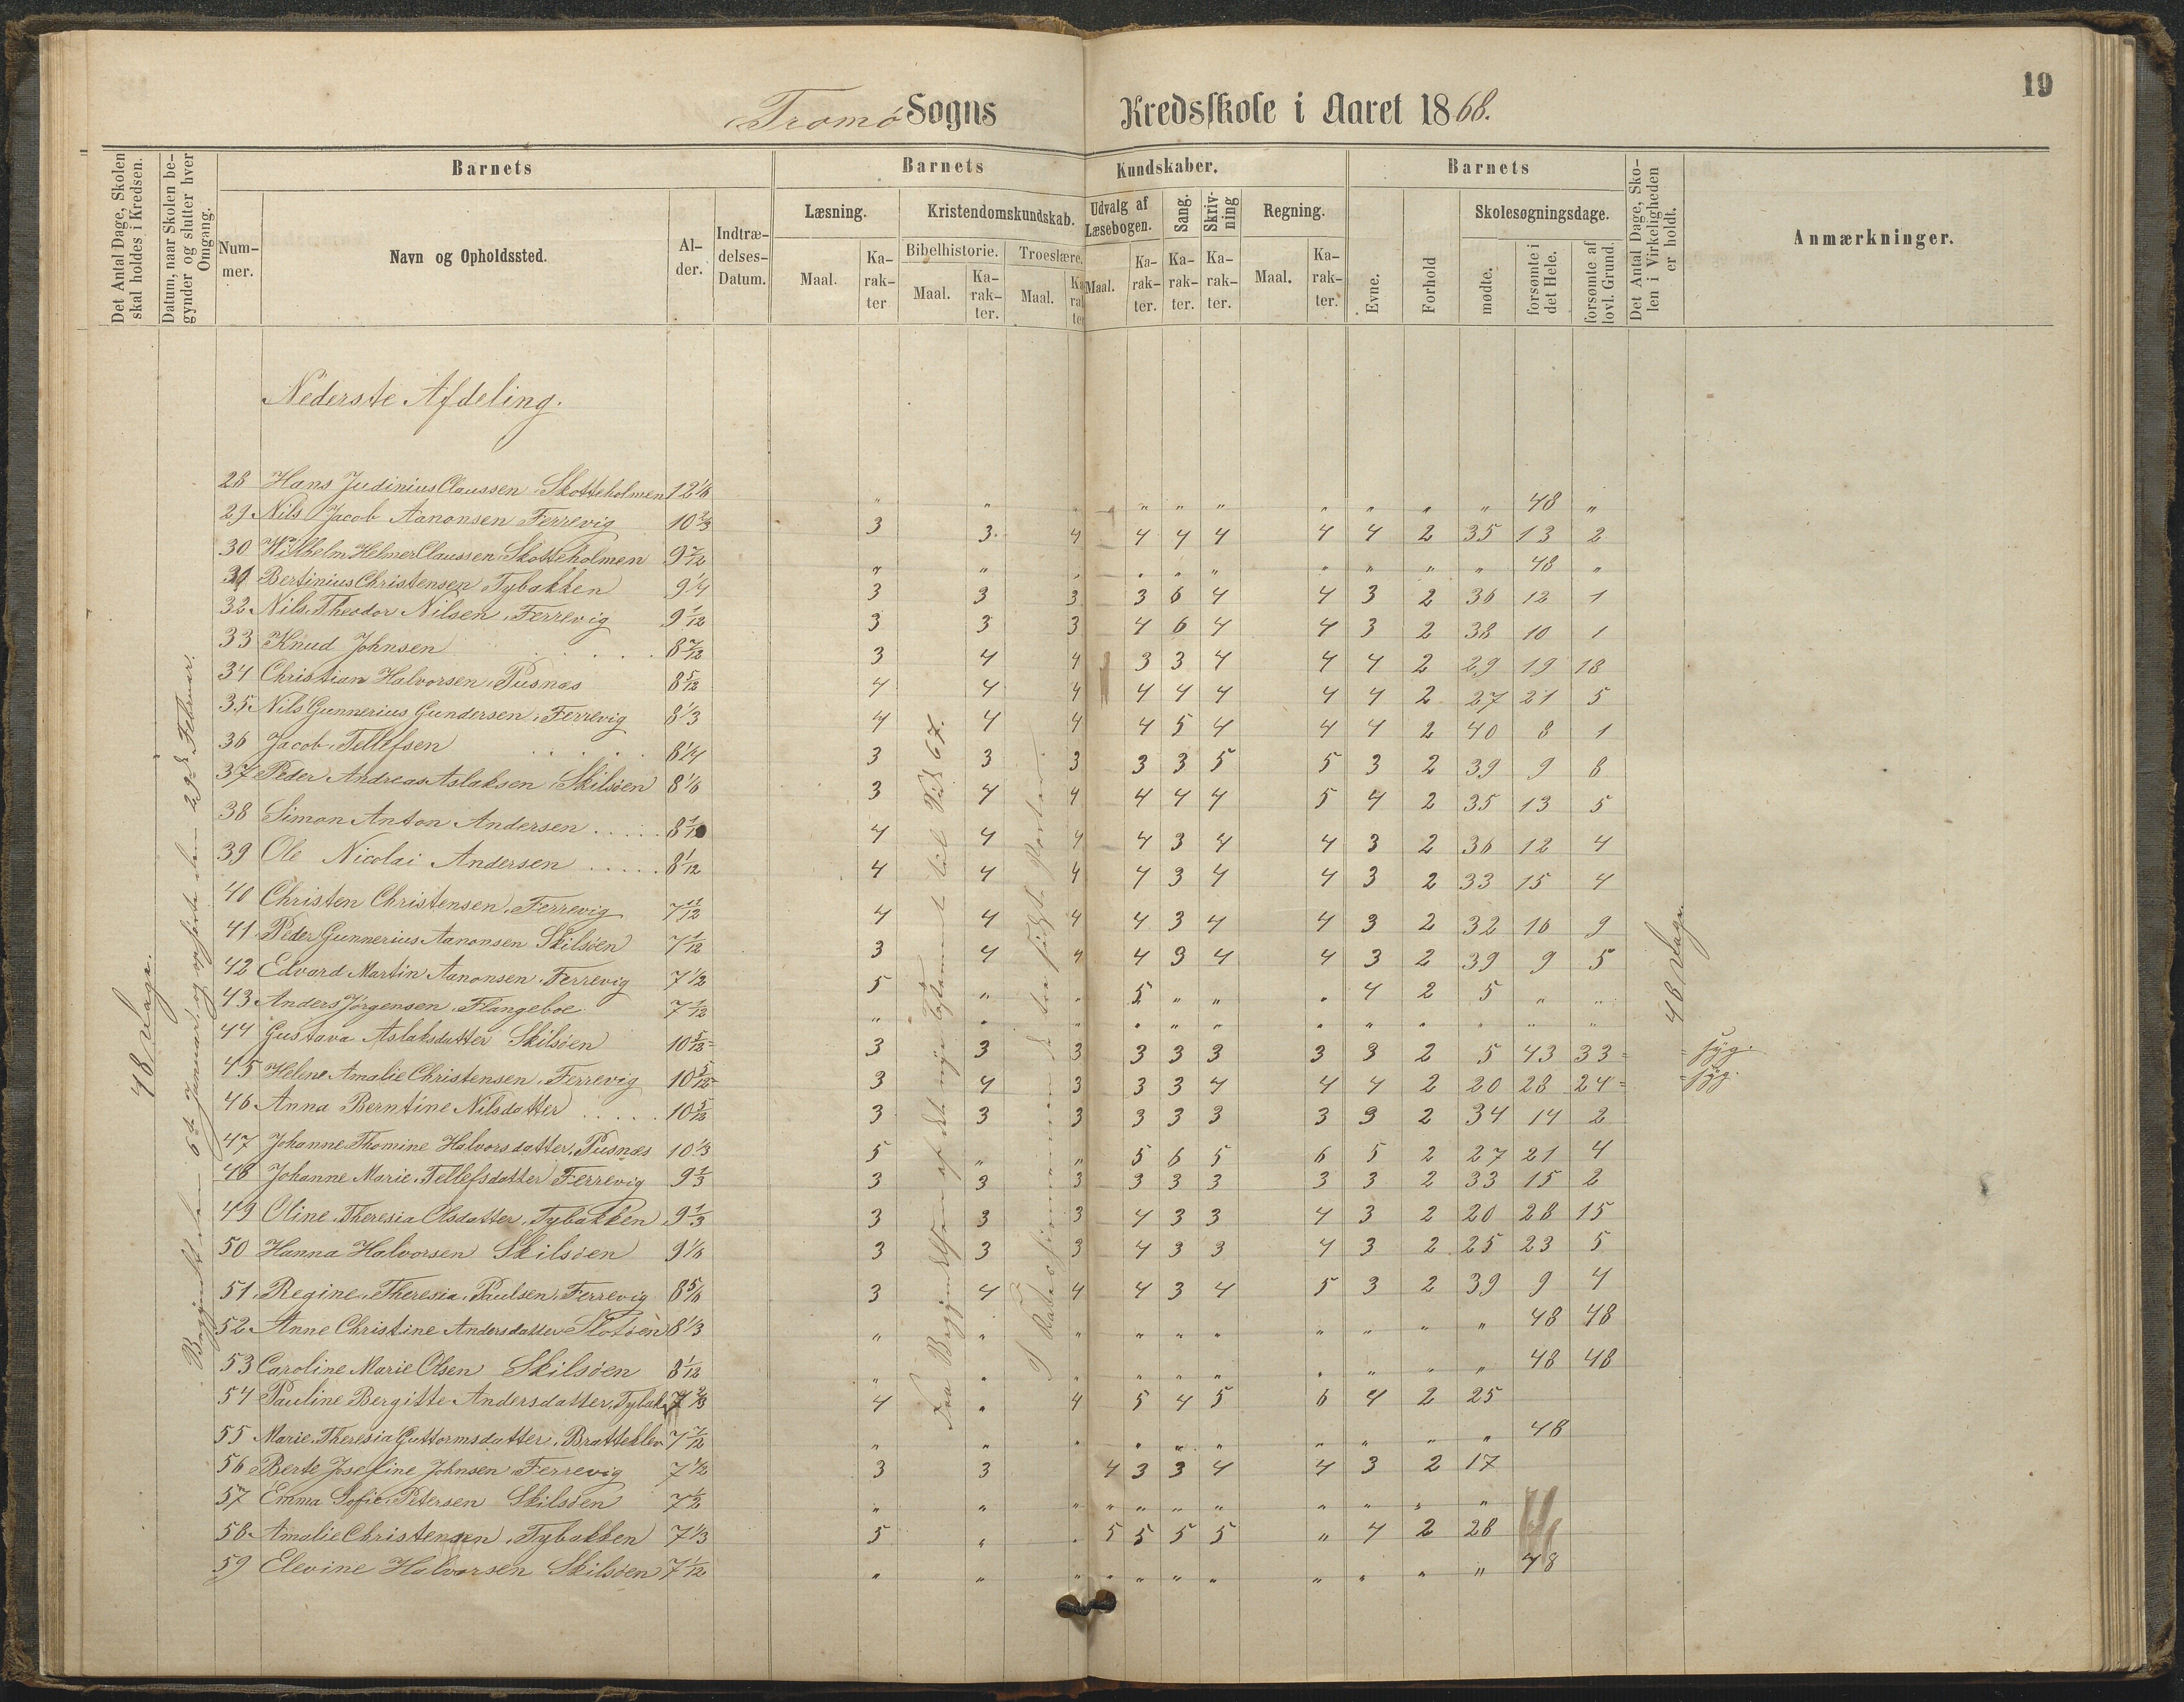 19
Tromø Sogns Kredsskole i Aaret 1868.
Det Antal Dage, Skolen skal holdes i Kredsen.
Datum, naar Skolen begynder og slutter hver Omgang.
Barnets
Nummer.
Navn og Opholdssted.
Alder.
Indtrædelses-Datum.
Barnets Kundskaber.
Læsning. Maal. Karakter
Kristendomskundskab.
Bibelhistorie. Maal. Karakter.
Troeslære. Maal. Karakter
Udvalg af Læsebogen. Maal. Karakter.
Sang. Karakter.
Skrivning Karakter.
Regning. Maal. Karakter.
Barnets
Evne.
Forhold
Skolesøgningsdage.
mødte.
forsømte i det Hele.
forsømte af lovl. Grund.
Det Antal Dage, Skolen i Virkeligheden er holdt.
Anmærkninger.
48 Dage.
Begyndt den 6te Januar og ophørte den 29de Februar.
Fra Begyndelsen af det nye Testament til Vid 67.
48 Dage.
Nederste Afdeling.
28 Hans Judinius Claussen Skotteholmen 12 1/6 " " " " " " " " " " 48 "
29 Nils Jacob Aanonsen Ferrevig 10 2/3 3 3 4 4 4 4 4 4 2 35 13 2
30 Wilhelm Helmer Claussen Skotteholmen 9 7/12 " " " " " " " " " " 48 "
31 Bertinius Christensen Tybakken 9 1/4 3 3 3 3 6 4 4 3 2 36 12 1
32 Nils Theodor Nilsen Ferrevig 9 1/12 3 3 3 4 6 4 4 3 2 38 10 1
33 Knud Johnsen . . . . 8 7/12 3 4 4 3 3 4 4 4 2 29 19 18
34 Christian Halvorsen Pusnæs 8 5/12 4 4 4 4 4 4 4 4 2 27 21 5
35 Nils Gunnerius Gundersen Ferrevig 8 1/3 4 4 4 4 5 4 4 4 2 40 8 1
36 Jacob Tellefsen . . . . 8 1/4 3 3 3 3 3 5 5 3 2 39 9 8
37 Peder Andreas Aslaksen Skilsøen 8 1/6 3 4 4 4 4 4 5 4 2 35 13 5
38 Simon Anton Andersen . . . . 8 1/12 4 4 4 4 3 4 4 3 2 36 12 4
39 Ole Nicolai Andersen . . . . . 8 1/12 4 4 4 4 3 4 4 3 2 33 15 4
40 Christen Christensen Ferrevig 7 11/12 4 4 4 4 3 4 4 3 2 32 16 9
41 Peder Gunnerius Aanonsen Skilsøen 7 1/12 3 4 4 4 3 4 4 3 2 39 9 5
42 Edvard Martin Aanonsen Ferrevig 7 1/2 5 " " 5 " " " 4 2 5 " "
43 Anders Jørgensen Flangeboe 7 1/12 " " " " " " " " " " " "
44 Gustava Aslaksdatter Skilsøen 10 5/12 3 3 3 3 3 3 3 3 2 5 43 33 = syg.
45 Helene Amalie Christensen Ferrevig 10 5/12 3 4 3 3 3 4 4 4 2 20 28 24 = syg.
46 Anna Berntine Nilsdatter . . . . 10 5/12 3 3 3 3 3 3 3 3 2 34 14 2
47 Johanne Thomine Halvorsdatter Pusnæs 10 1/3 5 " " 5 6 5 6 5 2 27 21 4
48 Johanne Marie Tellefsdatter Ferrevig 9 1/3 3 3 3 3 3 3 3 3 2 33 15 2
49 Oline Theresia Olsdatter Tybakken 9 1/3 3 3 3 4 3 3 4 3 2 20 28 15
50 Hanna Halvorsen Skilsøen 9 1/6 3 3 3 4 3 3 4 3 2 25 23 5
51 Regine Theresia Paulsen Ferrevig 8 5/6 3 4 4 4 3 4 5 3 2 39 9 4
52 Anne Christine Andersdatter 8 1/3 " " " " " " " " " " 48 48
53 Caroline Marie Olsen Skilsøen 8 1/12 " " " " " " " " " " 48 48
54 Pauline Bergitte Andersdatter Tybak 7 2/3 4 " 4 5 4 5 6 4 2 25
55 Marie Theresia Guttormsdatter Bratteklev 7 7/12 " " " " " " " " " " 48
56 Berte Josefine Johnsen Ferrevig 7 1/2 3 3 4 3 3 4 4 3 2 17
57 Emma Sofie Petersen Skilsøen 7 1/2 " " " " " " " " " " "
58 Amalie Christensen Tybakken 7 1/3 5 " " 5 5 5 5 " 4 2 28
59 Elevine Halvorsen Skilsøen 7 1/12 " " " " " " " " " " " 48